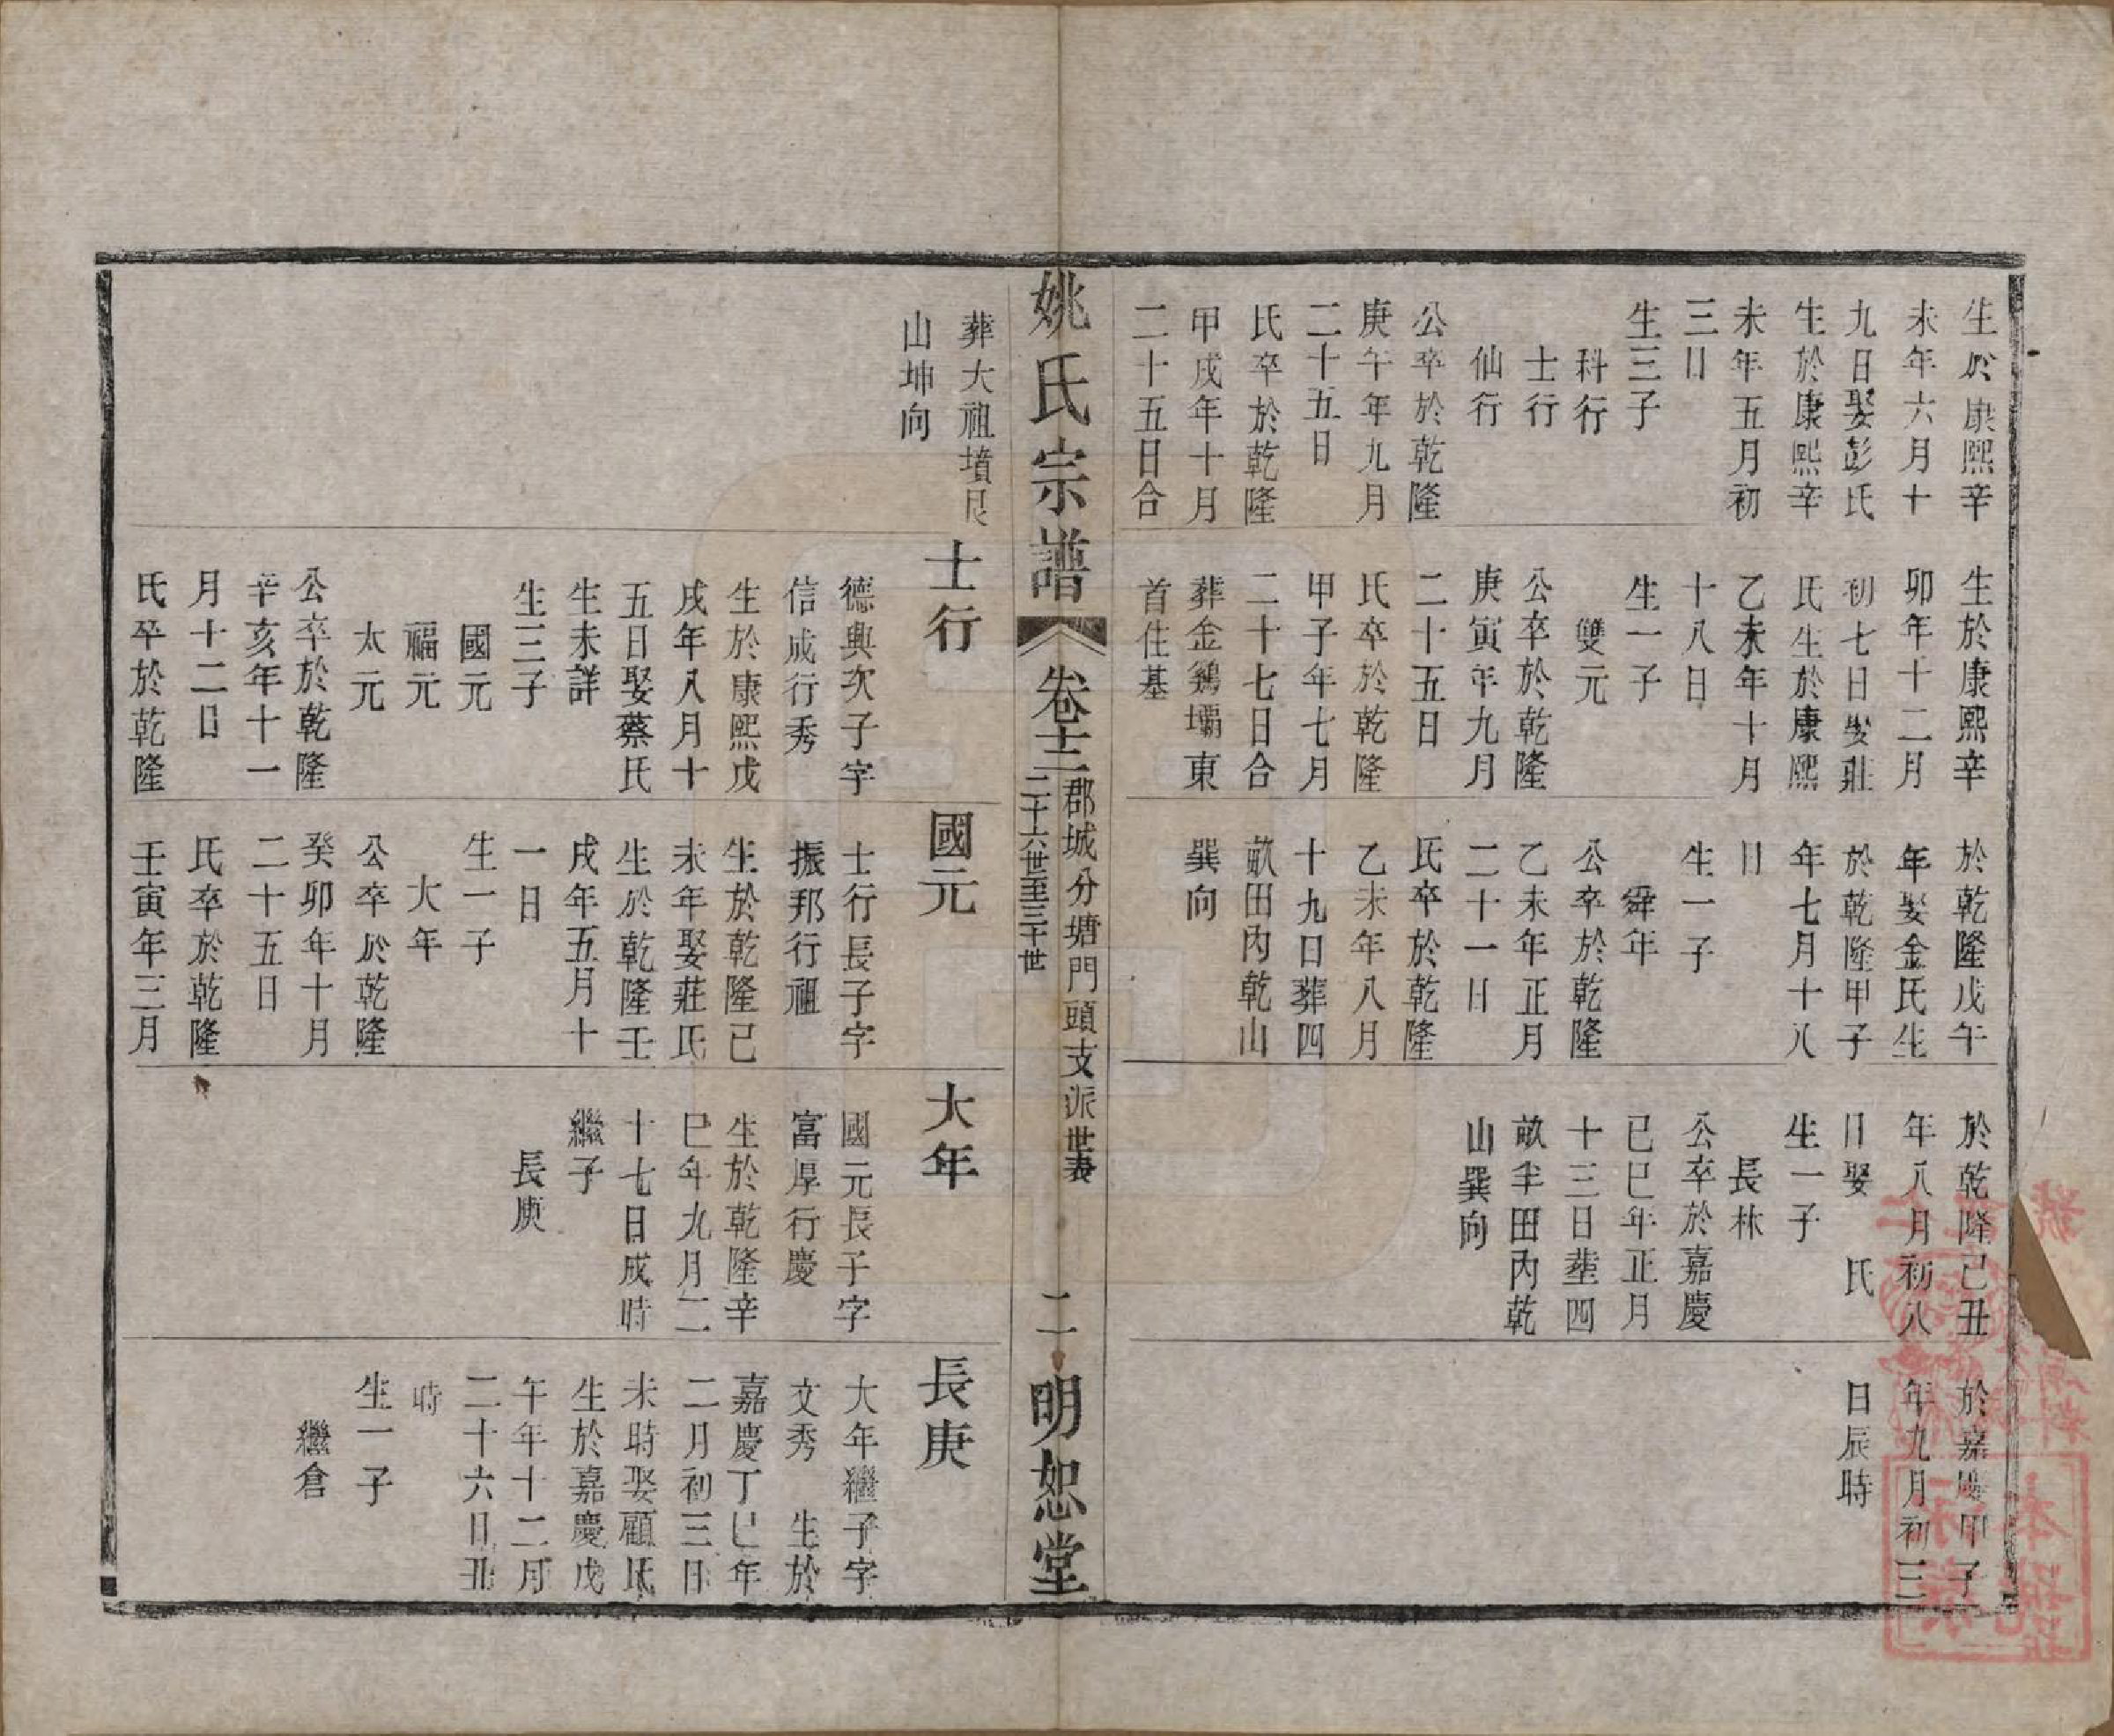 生於康熙辛
未年六月十
九日娶彭氏
生於康熙辛
未年五月初
三日
生三子
科行
士行
仙行
公卒於乾隆
庚午年九月
二十五日
氏卒於乾隆
甲戌年十月
二十五日合
生於康熙辛
卯年十二月
初七日娶莊
氏生於康熙
乙未年十月
十八日
生一子
雙元
公卒於乾隆
庚寅年九月
二十五日
氏卒於乾隆
甲子年七月
二十七日合
葬金鵝壩東
首住基
於乾隆戊午
年娶金氏生
於乾隆甲子
年七月十八
日
生一子
舜年
公卒於乾隆
乙未年正月
二十一日
氏卒於乾隆
乙未年八月
十九日葬四
畝田內乾山
巽向
於乾隆己丑
年八月初八
日娶 氏
生一子
長林
公卒於嘉慶
己巳年正月
十三日塟四
畝半田內乾
山巽向
於嘉慶甲子
年九月初三
日辰時
姚氏宗譜
卷十二
郡城分塘門頭支派世表
二十六世至三十世
二
明恕堂
葬大祖墳艮
山坤向
士行
德興次子字
信成行秀
生於康熙戊
戌年八月十
五日娶蔡氏
生未詳
生三子
國元
福元
太元
公卒於乾隆
辛亥年十一
月十二日
氏卒於乾隆
國元
士行長子字
振邦行祖
生於乾隆己
未年娶莊氏
生於乾隆壬
戌年五月十
一日
生一子
大年
公卒於乾隆
癸卯年十月
二十五日
氏卒於乾隆
壬寅年三月
大年
國元長子字
富厚行慶
生於乾隆辛
巳年九月二
十七日戌時
繼子
長庚
長庚
大年繼子字
文秀 生於
嘉慶丁巳年
二月初三日
未時娶顧氏
生於嘉慶戊
午年十二月
二十六日丑
時
生一子
繼倉